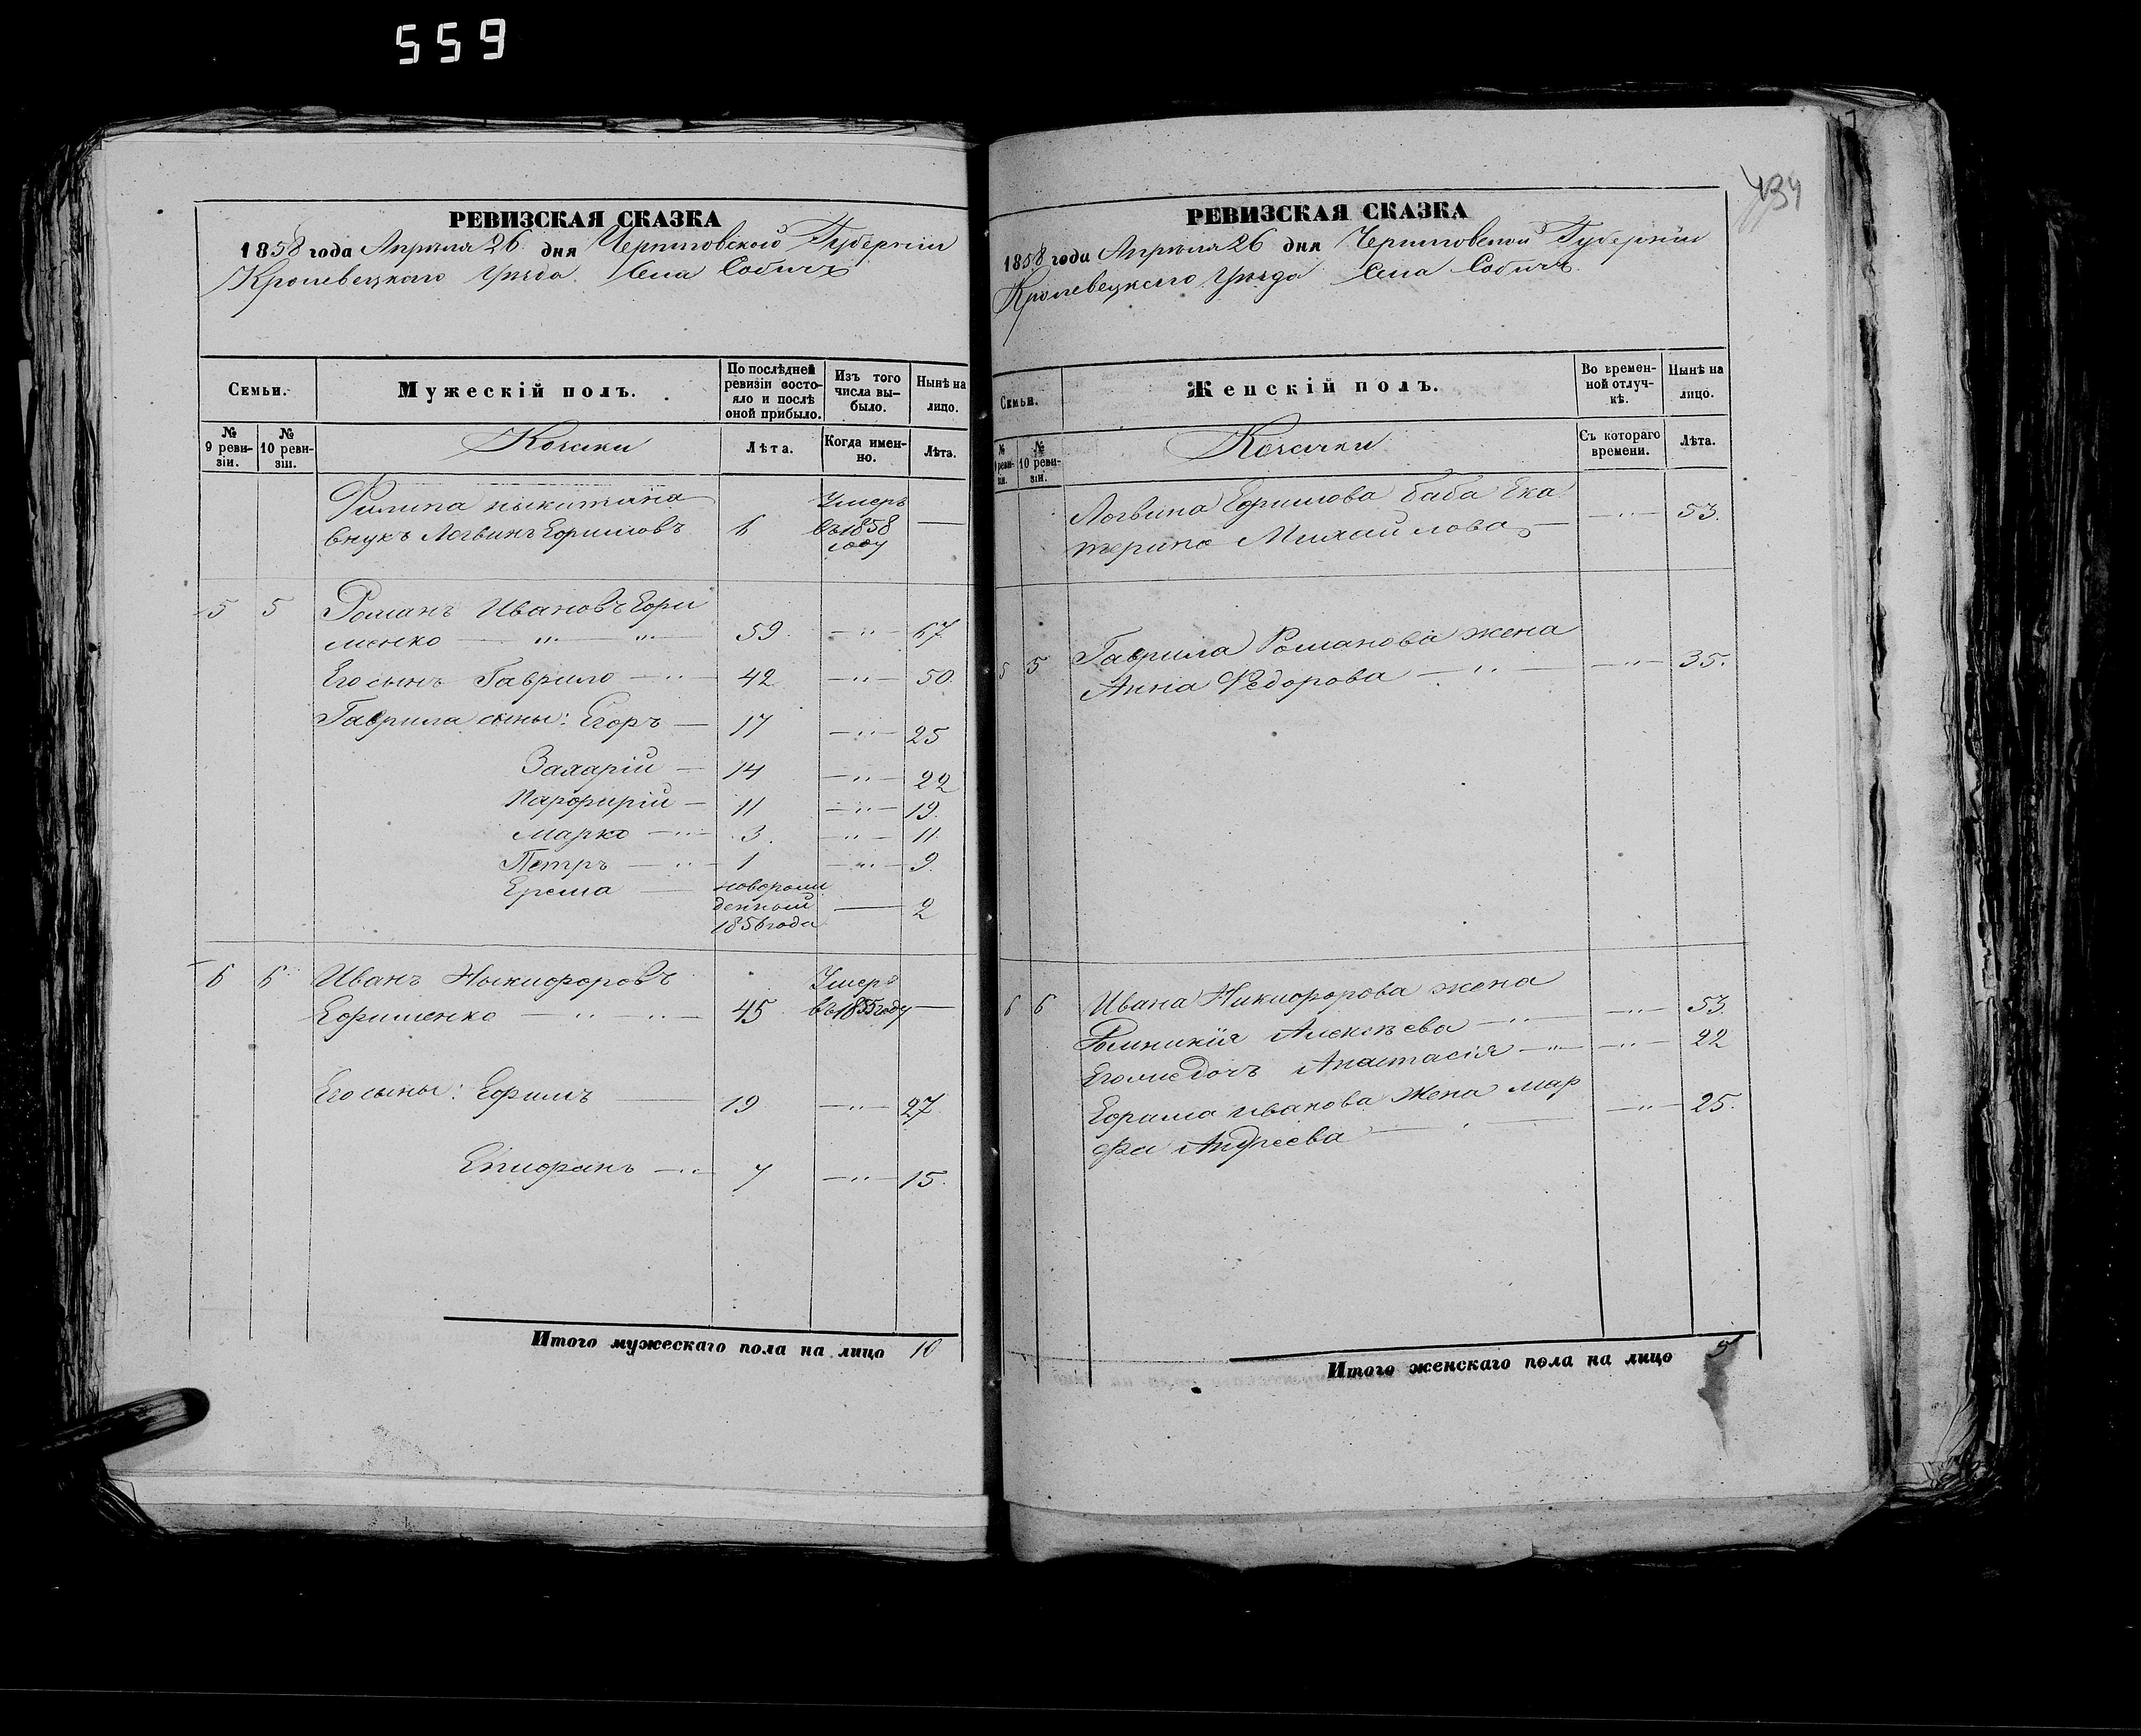 559
РЕВИЗСКАЯ СКАЗКА
1858 года Апрѣля 26 дня Черниговской Губерніи
Кролевецкаго Уѣзда Села Собичъ
Семьи.
Мужескій полъ.
По послѣдней ревизіи состояло и послѣ оной прибыло.
Изъ того числа выбыло.
Нынѣ на лицо.
№ 9 ревизіи.
№ 10 ревизіи.
Козаки
Лѣта.
Когда именно.
Лѣта.
Филипа Никитина Умеръ
внукъ Логвинъ Ефимовъ 6 въ 1858 —
году
5 5 Романъ Ивановъ Ефи
менко — " — " — 59 — " — 67
Его сынъ Гаврило — " — 42 — " — 50
Гаврила сыны: Егоръ — 17 — " — 25
Захарій — 14 — " — 22
Парфирій — 11 — " — 19.
Марко — " — 3. — " — 11.
Петръ — " — 1 — " — 9.
Ерема — новорож
денный — 2
1856 года
6 6 Иванъ Никифоровъ Умеръ
Ефименко — " — " — 45 въ 1855 году —
Его сыны: Ефимъ — 19 — " — 27.
Епифанъ — " — 7 — " — 15.
Итого мужескаго пола на лицо 10
434
РЕВИЗСКАЯ СКАЗКА
1858 года Апрѣля 26 дня Черниговской Губерніи
Кролевецкаго Уѣзда Села Собичъ
Семьи.
Женскій полъ.
Во временной отлучкѣ.
Нынѣ на лицо.
№ 9 ревизіи.
№ 10 ревизіи.
Козачки
Съ котораго времени.
Лѣта.
Логвина Ефимова баба Ека
терина Михайлова — — " — 53.
5 5 Гаврила Романова жена
Анна Федорова — " — — " — 35.
6 6 Ивана Никифорова жена
Алексѣева — " — — " — 53.
Его же дочь Анастасія — " — — " — 22
Ефима Иванова жена Мар
фа Андреева — " — — " — 25.
Итого женскаго пола на лицо 5